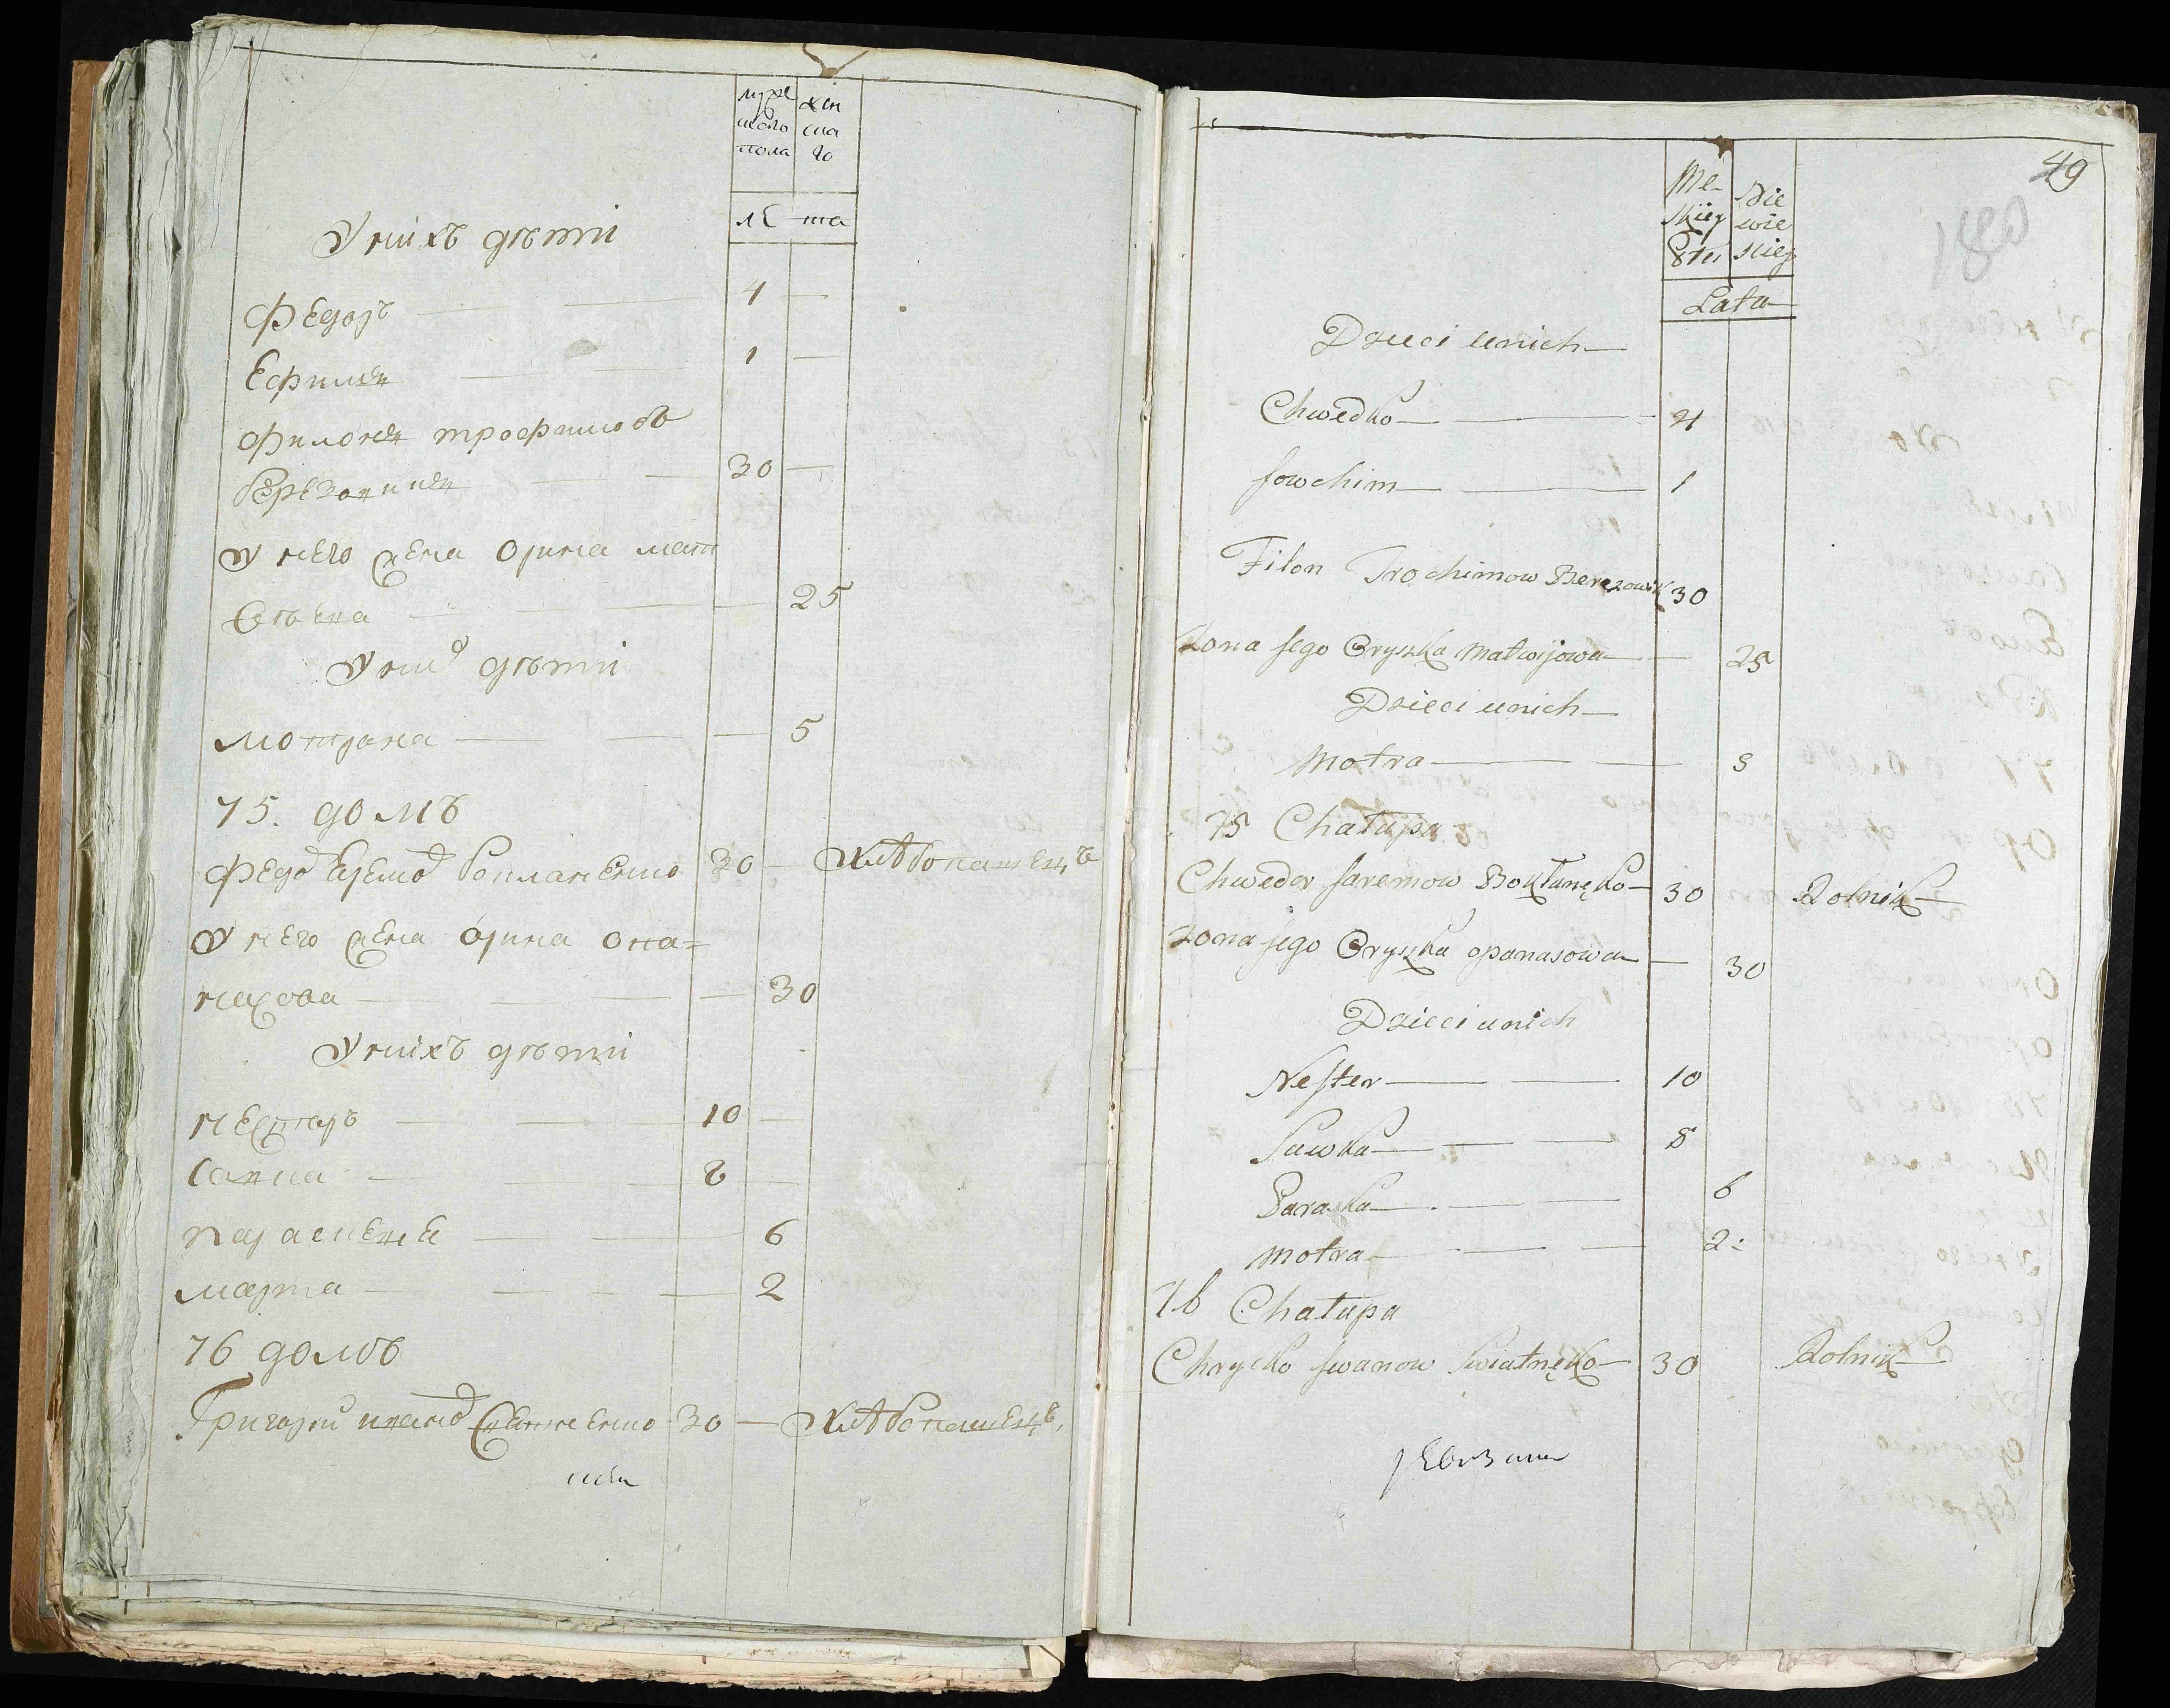 муже
жен
скаго
ска
пола
го
лѣ
та
У нихъ дѣти
Федоръ 4
Ефимъ 1
Филонъ Трофимовъ
30
У него жена Орина мат
вѣева 25
У них дѣти
Мотрана 5
75. домъ
Федо Еремо Бокланенко 30 Хлѣбопашецъ
У него жена Орина Опа=
насова 30
У нихъ дѣти
Нестеръ 10
Савка 8
Параскеве 6
Марта 2
76 домъ
Григорий Ивано 30 Хлѣбопашецъ,
49
180
Mę-
skiey
Płci
Nie
wie
skiey
Lata
Dzieci unich
Chwedko 4
Jowchim 1
Filon Trochimow Berezowik 30
Zona Jego Oryszka Matwijowa 25
Dzieci unich
Motra 5
75 Chałupa
Chweder Jaremow Bokłanęko 30 Rolnik
Zona jego Oryszka opanasowa 30
Dzieci unich
Nester 10
Sawka 8
Paraska 6
Motra 2:
76 Chałupa
Chrycko Jwanow Swiatnęko 30 Rolnik